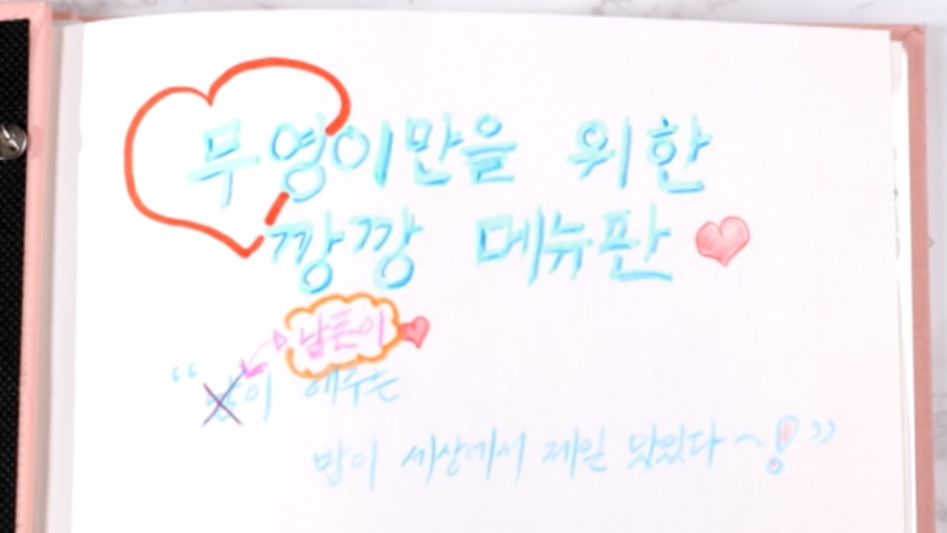 무영이만을 위한
깡깡 메뉴판
남튼이
이 해주는
"밥이 세상에서 제일 맛있다~!"